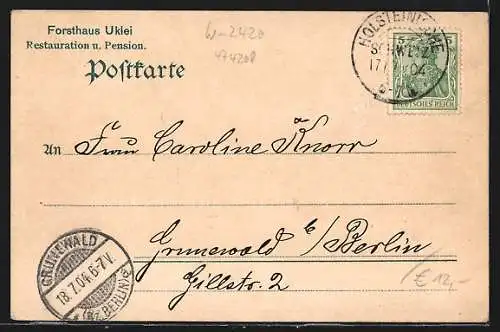 Forsthaus Uklei
Restauration u. Pension.
Postkarte
W-2420
HOLSTEINISCHE
SCHWEIZ
17
04
5
DEUTSCHES REICH
An Frau Caroline Knorr
Grunewald b/Berlin
Gillstr. 2
GRUNEWALD
18.7.04.6-7V.
(BZ. BERLIN)
€ 12,-